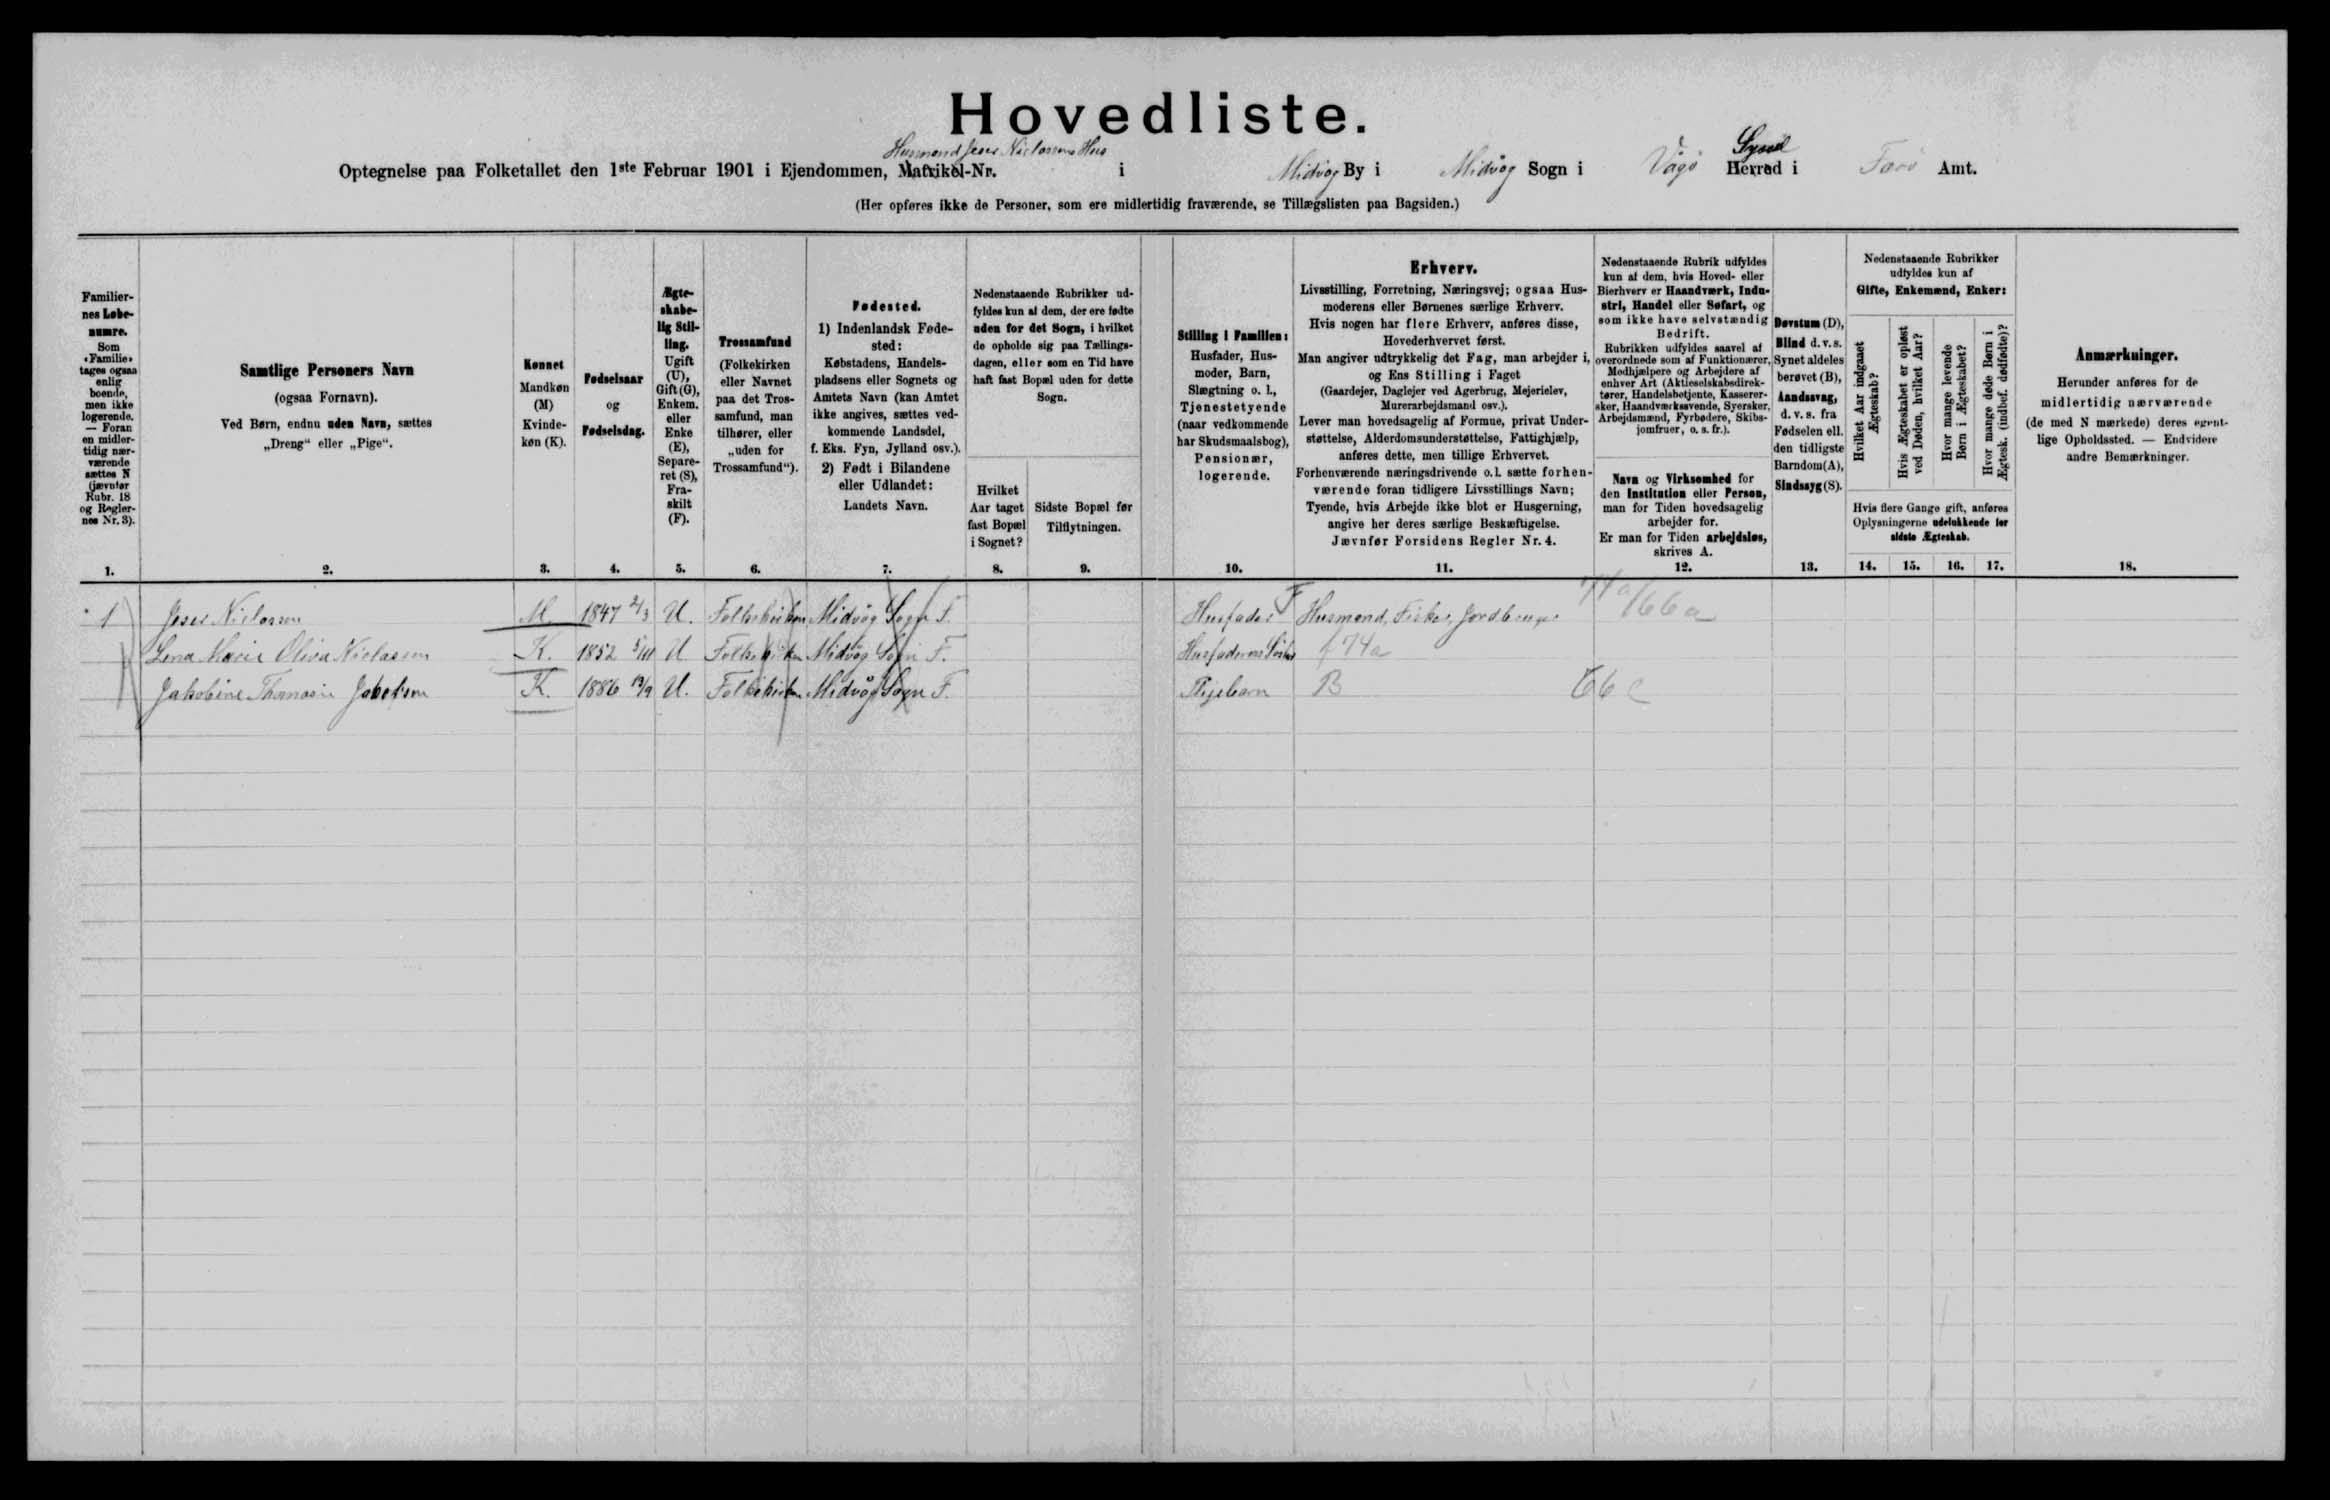 Hovedliste.
Husmand Joser Niclassens Hus
Optegnelse paa Folketallet den 1ste Februar 1901 i Ejendommen, Matrikel-Nr. i Midvåg By i Midvåg Sogn i Vågø Syssel Herred i Færø Amt.
(Her opføres ikke de Personer, som ere midlertidig fraværende, se Tillægslisten paa Bagsiden.)
Familier-
nes Løbe-
numre.
Som
«Familie»
tages ogsaa
enlig
boende,
men ikke
logerende.
— Foran
en midler-
tidig nær-
værende
sættes N
(jævnfør
Rubr. 18
og Regler-
nes Nr. 3).
1.
Samtlige Personers Navn
(ogsaa Fornavn).
Ved Børn, endnu uden Navn, sættes
„Dreng“ eller „Pige“.
2.
Kønnet
Mandkøn
(M)
Kvinde-
køn (K).
3.
Fødselsaar
og
Fødselsdag.
4.
Ægte-
skabe-
lig Stil-
ling.
Ugift
(U),
Gift (G),
Enkem.
eller
Enke
(E),
Separe-
ret (S),
Fra-
skilt
(F).
5.
Trossamfund
(Folkekirken
eller Navnet
paa det Tros-
samfund, man
tilhører, eller
„uden for
Trossamfund“).
6.
Fødested.
1) Indenlandsk Føde-
sted:
Købstadens, Handels-
pladsens eller Sognets og
Amtets Navn (kan Amtet
ikke angives, sættes ved-
kommende Landsdel,
f. Eks. Fyn, Jylland osv.).
2) Født i Bilandene
eller Udlandet:
Landets Navn.
7.
Nedenstaaende Rubrikker ud-
fyldes kun af dem, der ere fødte
uden for det Sogn, i hvilket
de opholde sig paa Tællings-
dagen, eller som en Tid have
haft fast Bopæl uden for dette
Sogn.
Hvilket
Aar taget
fast Bopæl
i Sognet?
8.
Sidste Bopæl før
Tilflytningen.
9.
Stilling i Familien:
Husfader, Hus-
moder, Barn,
Slægtning o. l.,
Tjenestetyende
(naar vedkommende
har Skudsmaalsbog),
Pensionær,
logerende.
10.
Erhverv.
Livsstilling, Forretning, Næringsvej; ogsaa Hus-
moderens eller Børnenes særlige Erhverv.
Hvis nogen har flere Erhverv, anføres disse,
Hovederhvervet først.
Man angiver udtrykkelig det Fag, man arbejder i,
og Ens Stilling i Faget
(Gaardejer, Daglejer ved Agerbrug, Mejerielev,
Murerarbejdsmand osv.).
Lever man hovedsagelig af Formue, privat Under-
støttelse, Alderdomsunderstøttelse, Fattighjælp,
anføres dette, men tillige Erhvervet.
Forhenværende næringsdrivende o.l. sætte forhen-
værende foran tidligere Livsstillings Navn;
Tyende, hvis Arbejde ikke blot er Husgerning,
angive her deres særlige Beskæftigelse.
Jævnfør Forsidens Regler Nr. 4.
11.
Nedenstaaende Rubrik udfyldes
kun af dem, hvis Hoved- eller
Bierhverv er Haandværk, Indu-
stri, Handel eller Søfart, og
som ikke have selvstændig
Bedrift.
Rubrikken udfyldes saavel af
overordnede som af Funktionærer,
Medhjælpere og Arbejdere af
enhver Art (Aktieselskabsdirek-
tører, Handelsbetjente, Kasserer-
sker, Haandværkssvende, Syersker,
Arbejdsmænd, Fyrbødere, Skibs-
jomfruer, o. s. fr.).
Navn og Virksomhed for
den Institution eller Person,
man for Tiden hovedsagelig
arbejder for.
Er man for Tiden arbejdsløs,
skrives A.
12.
Døvstum (D),
Blind d. v. s.
Synet aldeles
berøvet (B),
Aandssvag,
d. v. s. fra
Fødselen ell.
den tidligste
Barndom (A),
Sindssyg (S).
13.
Nedenstaaende Rubrikker
udfyldes kun af
Gifte, Enkemænd, Enker:
Hvilket Aar indgaaet
Ægteskab?
Hvis Ægteskabet er opløst
ved Døden, hvilket Aar?
Hvor mange levende
Børn i Ægteskabet?
Hvor mange døde Børn i
Ægtesk. (indbef. dødfødte)?
Hvis flere Gange gift, anføres
Oplysningerne udelukkende for
sidste Ægteskab.
14. 15. 16. 17.
Anmærkninger.
Herunder anføres for de
midlertidig nærværende
(de med N mærkede) deres egent-
lige Opholdssted. — Endvidere
andre Bemærkninger.
18.
1 Joser Niclassen M. 1847 2/3 U. Folkekirken Midvåg Sogn F. Husfader F Husmand, Fisker, Jordbruger 74a 66a
Lena Marie Oliva Niclassen K. 1852 5/11 U Folkekirken Midvåg Sogn F. Husfaderens Søster f 74a
Jakobine Thomasine Jakobsen K. 1886 19/9 U. Folkekirken Midvåg Sogn F. Plejebarn B 66c